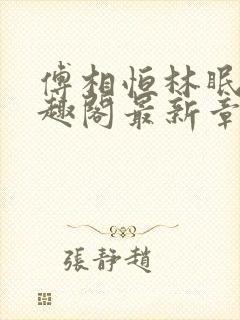 傅相恒林眠
趣阁最新章
張靜趙